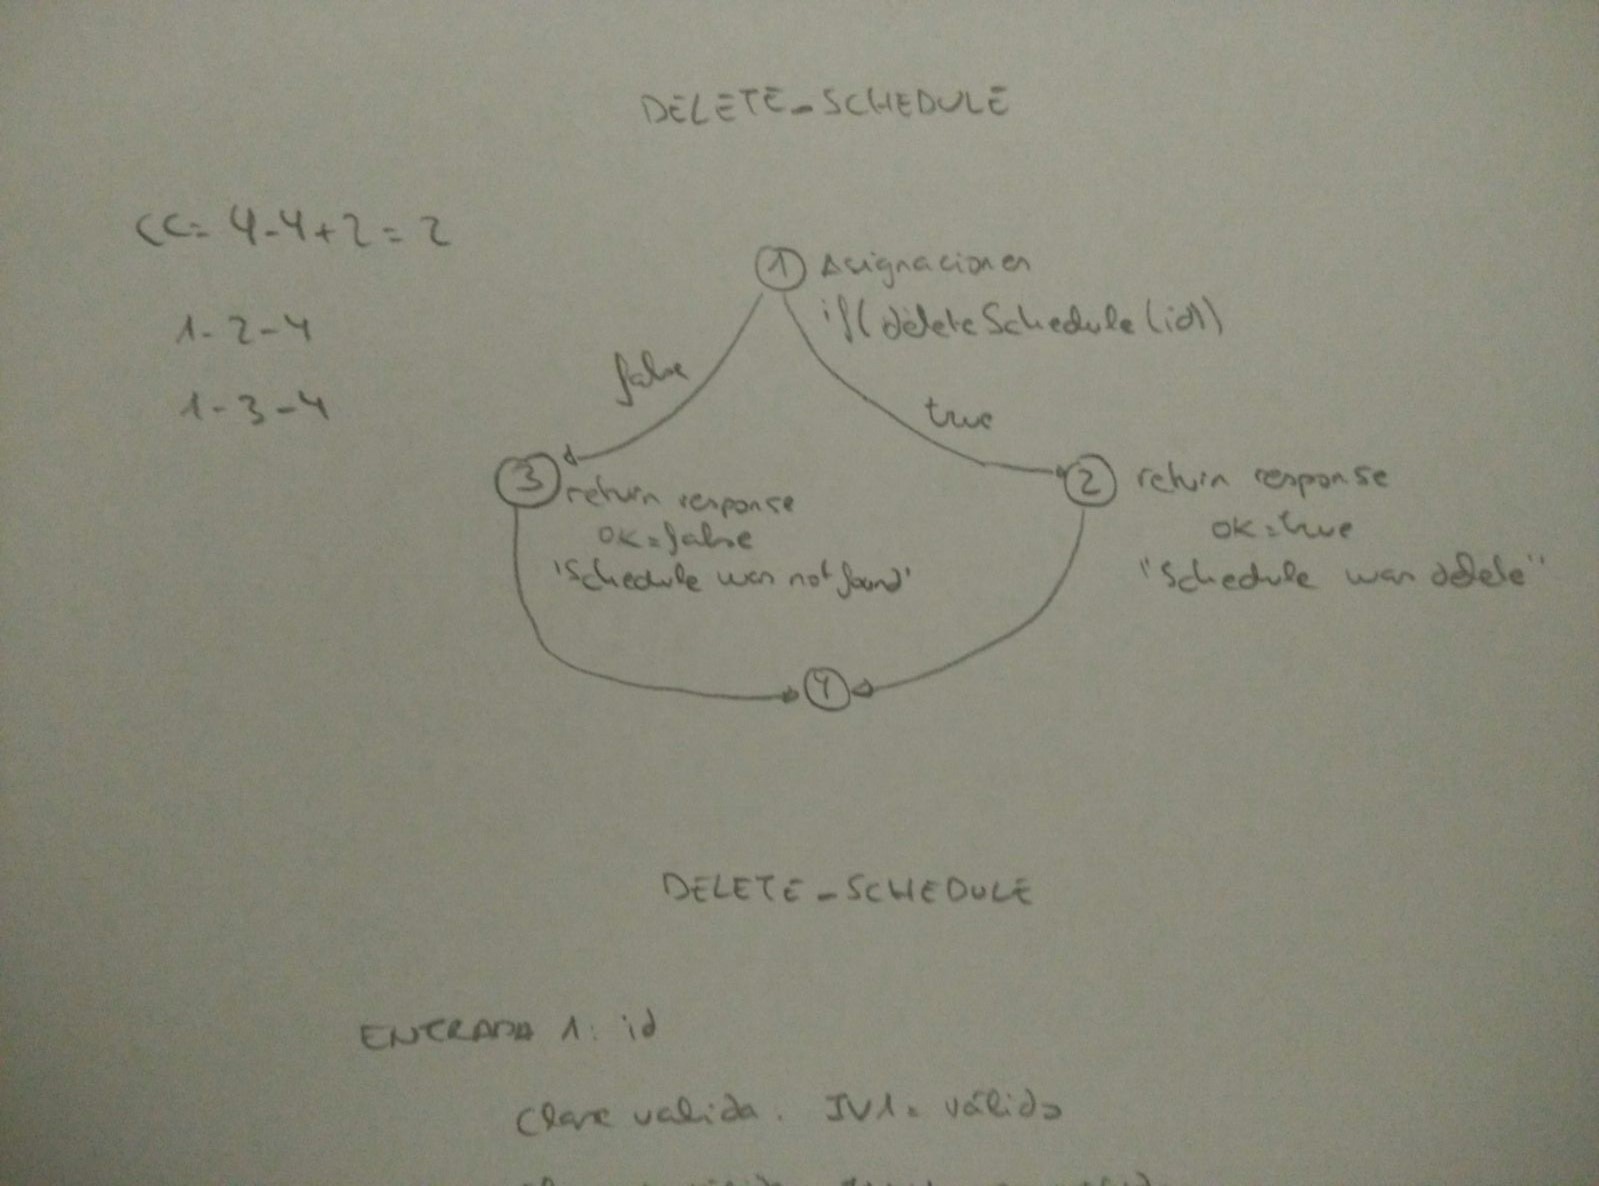 DELETE_SCHEDULE
CC= 4-4+2=2
1-2-4
1-3-4
1 Asignaciones
if(deleteSchedule(id))
false
true
3 return response
ok=false
'Schedule was not found'
2 return response
ok=true
"Schedule was delete"
4
DELETE_SCHEDULE
ENTRADA 1: id
Clase valida. IV1= válido